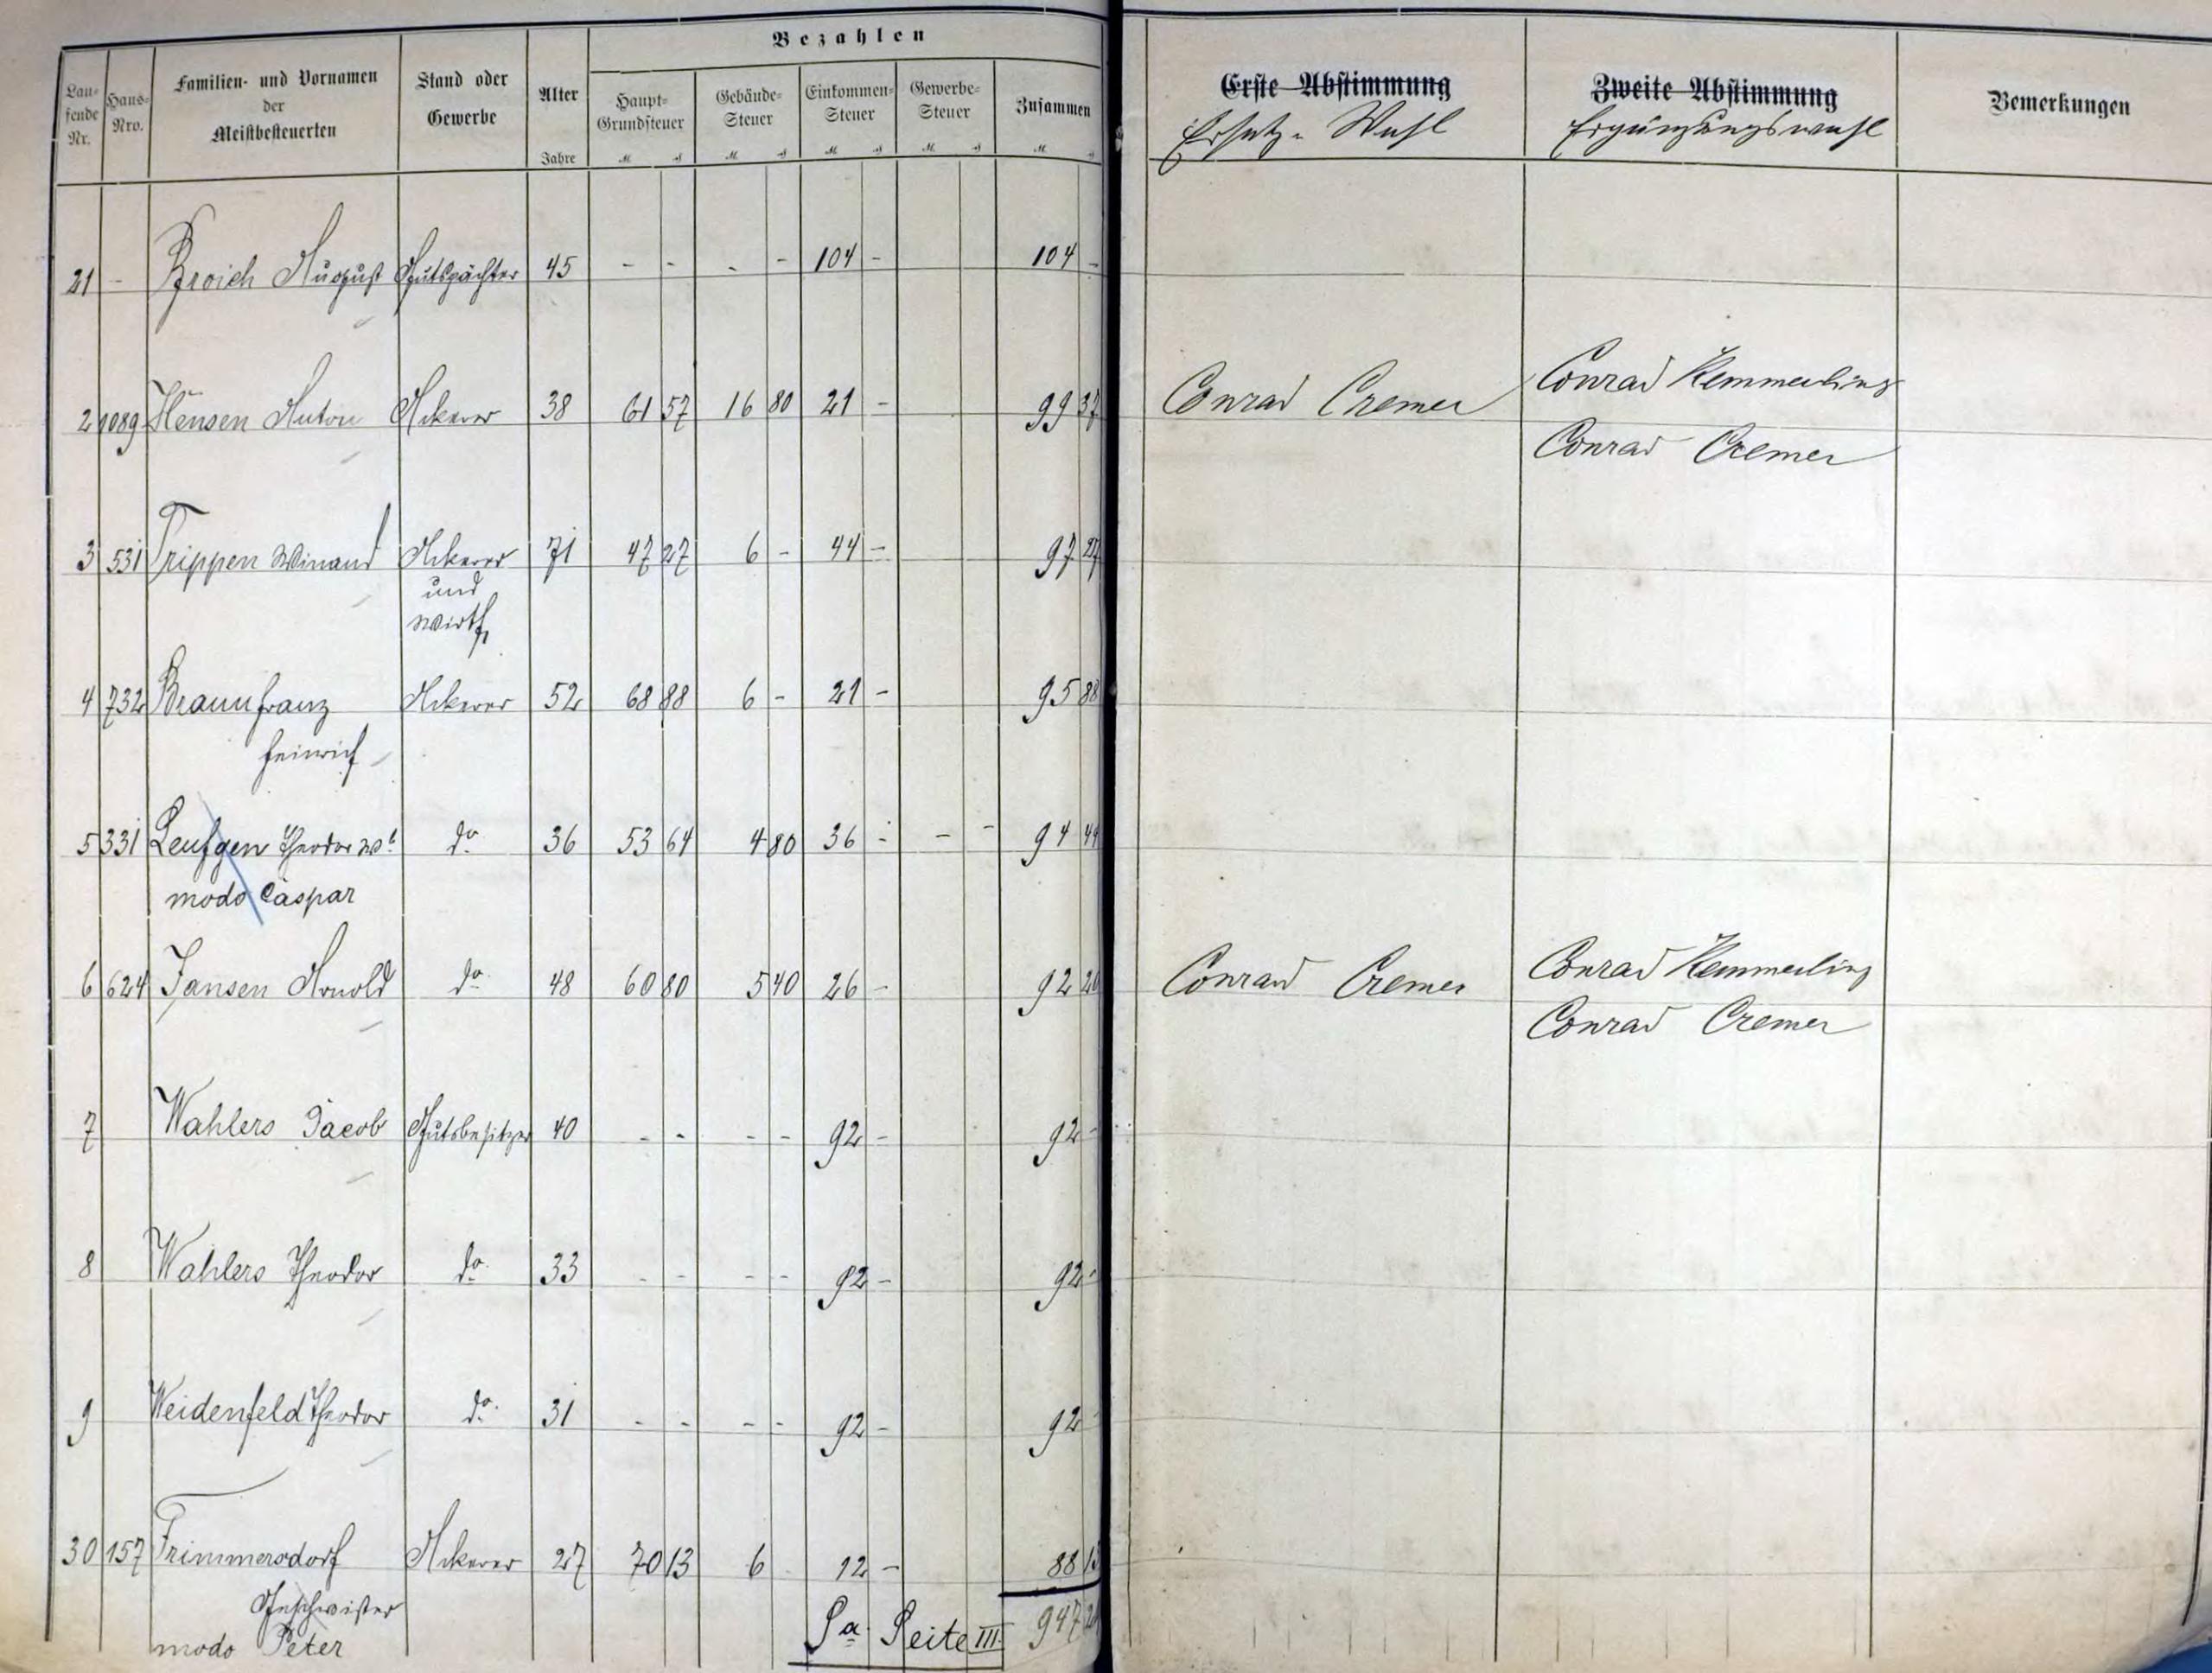 Bezahlen
Lau-
fende
Nr.
Haus-
Nro.
Familien- und Vornamen
der
Meistbesteuerten
Stand oder
Gewerbe
Alter
Jahre
Haupt-
Grundsteuer
Gebäude-
Steuer
Einkommen-
Steuer
Gewerbe-
Steuer
Zusammen
Erste Abstimmung
Ersatz-Wahl
Zweite Abstimmung
Ergänzungswahl
Bemerkungen
21 - Broich August Gutspächter 45 - - - - 104 - 104 -
2 1089 Hensen Anton Ackerer 38 61 57 16 80 21 - 99 37 Conrad Cremer Conrad Kemmerling
Conrad Cremer
3 531 Trippen Winand Ackerer 71 47 27 6 - 44 - 97 27
und
Wirth
4 732 Braun Franz Ackerer 52 68 88 6 - 21 - 95 88
Heinrich
5 331 Leufgen Theodor do 36 53 64 4 80 36 - - - 94 44
modo Caspar
6 624 Jansen Arnold do 48 60 80 5 40 26 - 92 20 Conrad Cremer Conrad Kemmerling
Conrad Cremer
7 Wahlers Jacob Gutsbesitzer 40 - - - - 92 - 92 -
8 Wahlers Theodor do 33 - - - - 92 - 92 -
9 Weidenfeld Theodor do 31 - - - - 92 - 92 -
30 157 Frimmersdorf Ackerer 27 70 13 6 12 - 88 13
Geschwister
modo Peter
Sa. Seite III. 947